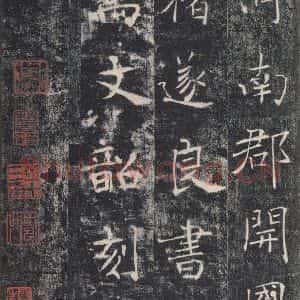 河南郡開國
褚遂良書
萬文韶刻